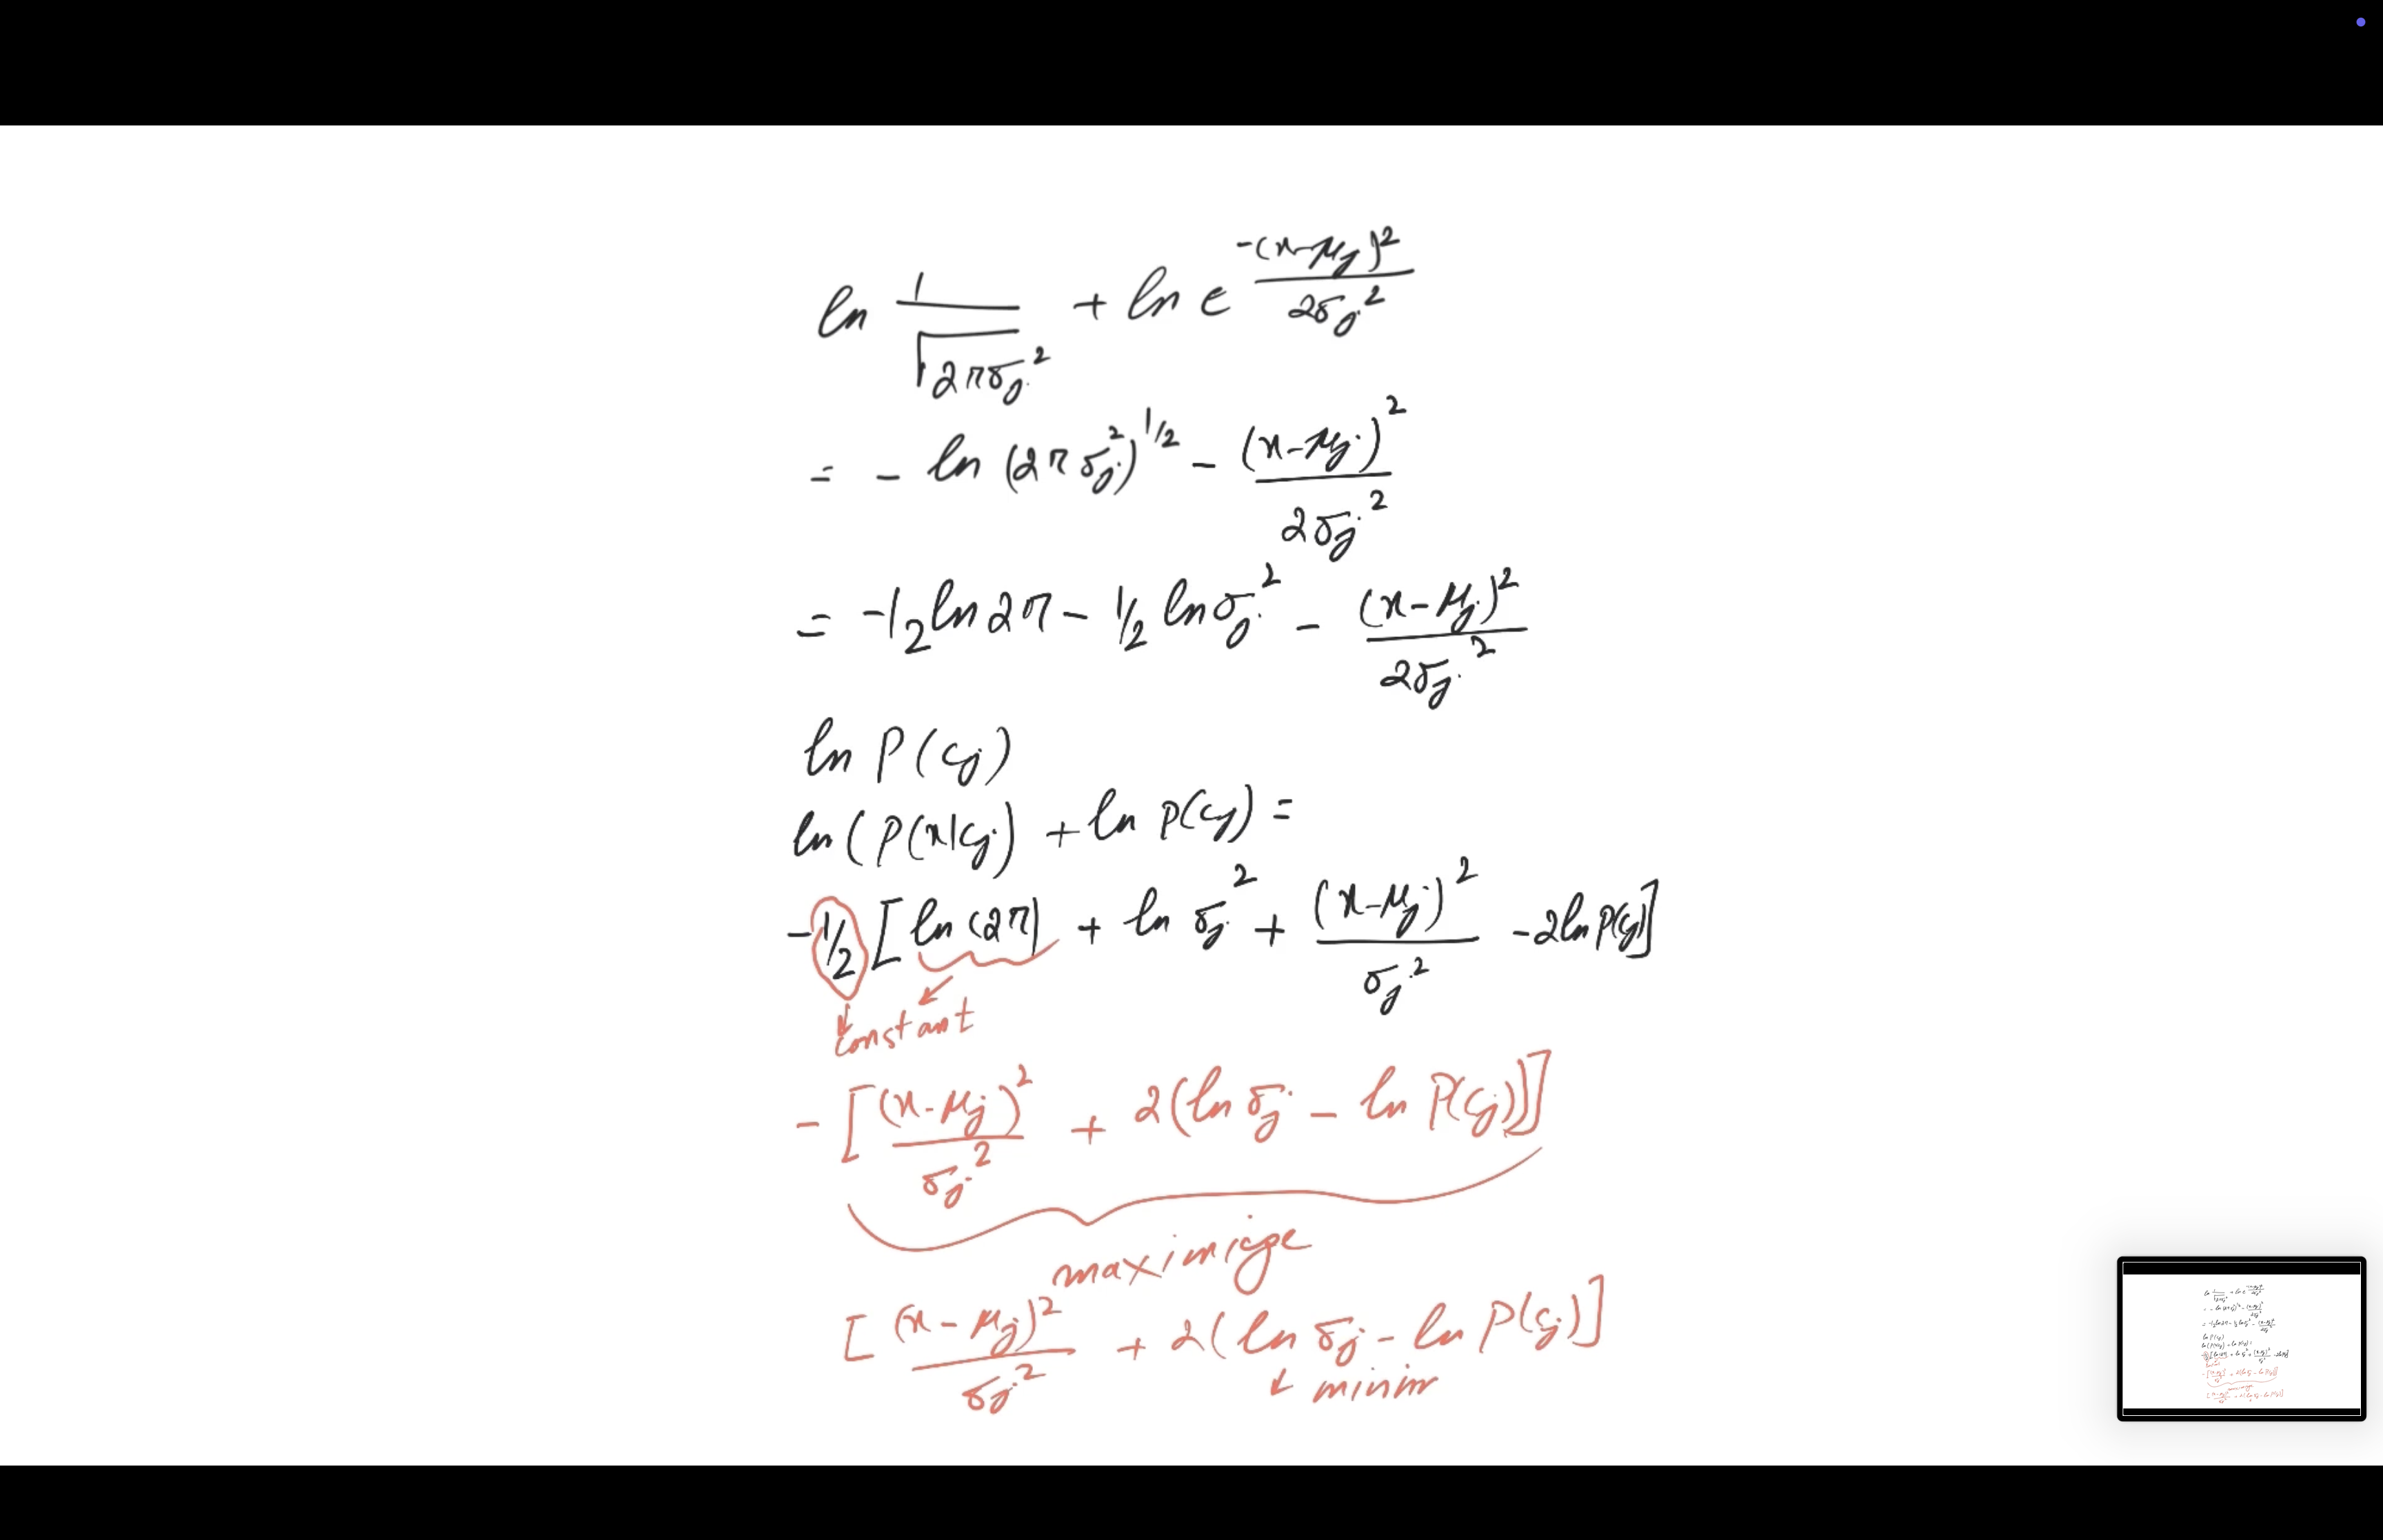 ln 1/√(2πσj²) + ln e^(-(x-μj)²/2σj²)
= - ln (2πσj²)^1/2 - (x-μj)²/2σj²
= -1/2 ln 2π - 1/2 ln σj² - (x-μj)²/2σj²
ln P(cj)
ln (P(x|cj) + ln P(cj) =
-1/2 [ln (2π) + ln σj² + (x-μj)²/σj² - 2 ln P(cj)]
constant
- [(x-μj)²/σj² + 2(ln σj - ln P(cj))]
maximize
[(x-μj)²/σj² + 2(ln σj - ln P(cj)]
minim